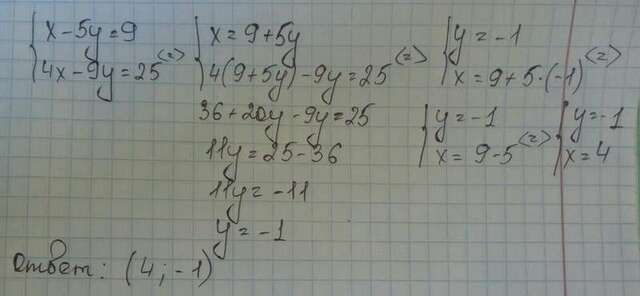 { x - 5y = 9
4x - 9y = 25 <=>
{ x = 9 + 5y
4(9 + 5y) - 9y = 25 <=>
36 + 20y - 9y = 25
11y = 25 - 36
11y = -11
y = -1
{ y = -1
x = 9 + 5·(-1) <=>
{ y = -1
x = 9 - 5 <=>
{ y = -1
x = 4
Ответ: (4; -1)